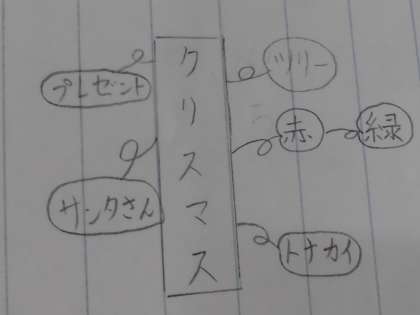 クリスマス
プレゼント
サンタさん
ツリー
赤
緑
トナカイ